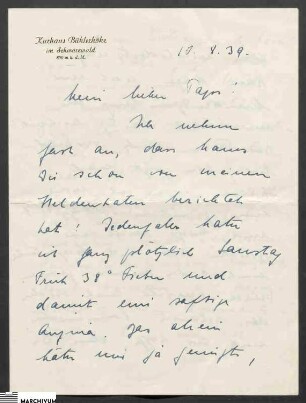 Kurhaus Bühlerhöhe
im Schwarzwald
800 m ü. d. M.
17. 8. 39.
Mein lieber Papi!
Ich nehme
fast an, dass Hanns
Dir schon von meinen
Heldentaten berichtet
hat! Jedenfalls hatte
ich ganz plötzlich Samstag
Früh 38° Fieber und
damit eine saftige
Angina. Das allein
hätte mir ja genügt,
MARCHIVUM